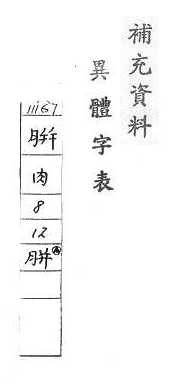 補充資料
異體字表
11167
腁
肉
8
12
胼Ⓐ